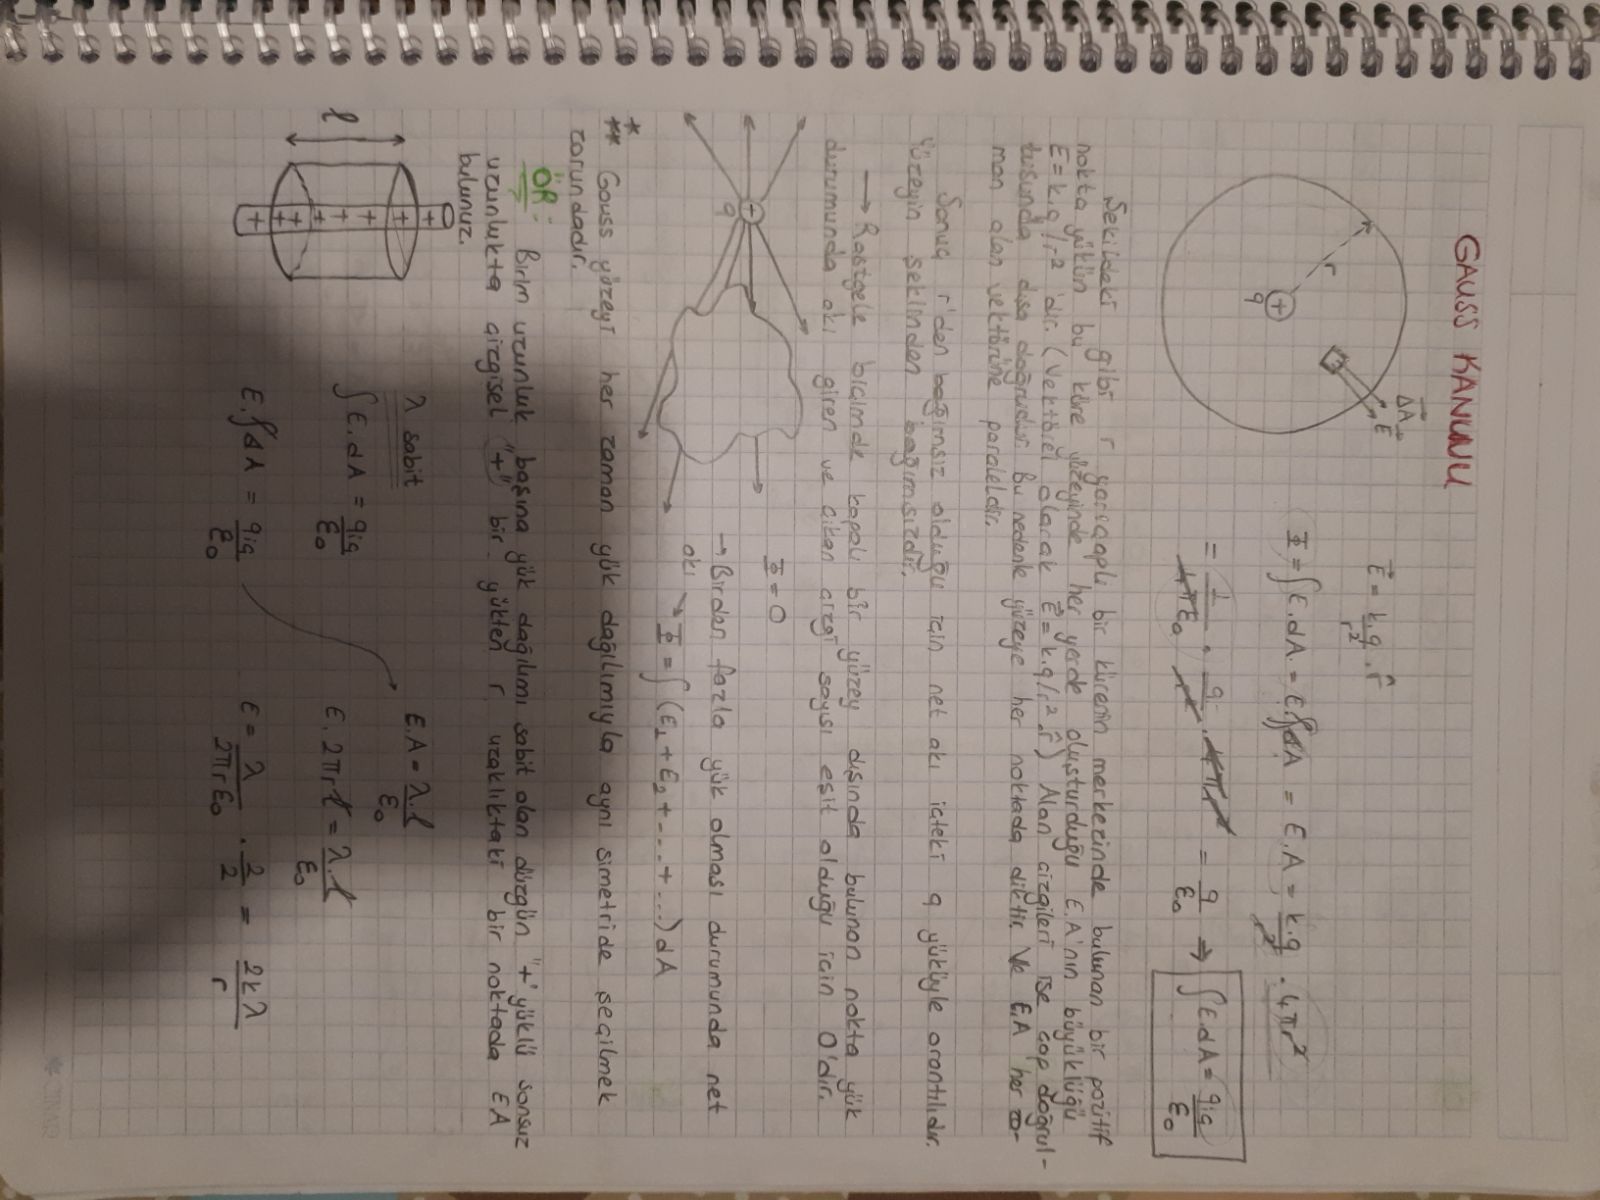 GAUSS KANUNU
ΔA
E
r
+
q
E = k.q/r² . r̂
Φ = ∫E.dA = E.∮dA = E.A = k.q/r² . 4πr²
= 1/4πε₀ . q/r² . 4πr² = q/ε₀ ⇒ ∫E.dA = qiç/ε₀
Şekildeki gibi r yarıçaplı bir kürenin merkezinde bulunan bir pozitif
nokta yükün bu küre yüzeyinde her yerde oluşturduğu E.A'nın büyüklüğü
E = k.q/r² 'dir. (Vektörel olarak E = k.q/r² . r̂) Alan çizgileri ise çap doğrul-
tusunda dışa doğrudur. Bu nedenle yüzeye her noktada diktir. Ve E.A her za-
man alan vektörüne paraleldir.
Sonuç r'den bağımsız olduğu için net akı içteki q yüküyle orantılıdır.
Yüzeyin şeklinden bağımsızdır.
→ Rastgele biçimde kapalı bir yüzey dışında bulunan nokta yük
durumunda akı giren ve çıkan çizgi sayısı eşit olduğu için 0'dır.
+
q
Φ = 0
→ Birden fazla yük olması durumunda net
akı → Φ = ∫(E₁ + E₂ + ... + ...) dA
*
** Gauss yüzeyi her zaman yük dağılımıyla aynı simetride seçilmek
zorundadır.
ÖR:
Birim uzunluk başına yük dağılımı sabit olan düzgün "+" yüklü sonsuz
uzunlukta çizgisel "+" bir yükten r uzaklıktaki bir noktada EA
bulunuz.
l
+
+
+
+
+
+
+
+
λ sabit
∫E.dA = qiç/ε₀
E.∮dA = qiç/ε₀
E.A = λ.l/ε₀
E. 2πrl = λ.l/ε₀
E = λ/2πrε₀ . 2/2 = 2kλ/r
ÇINAR